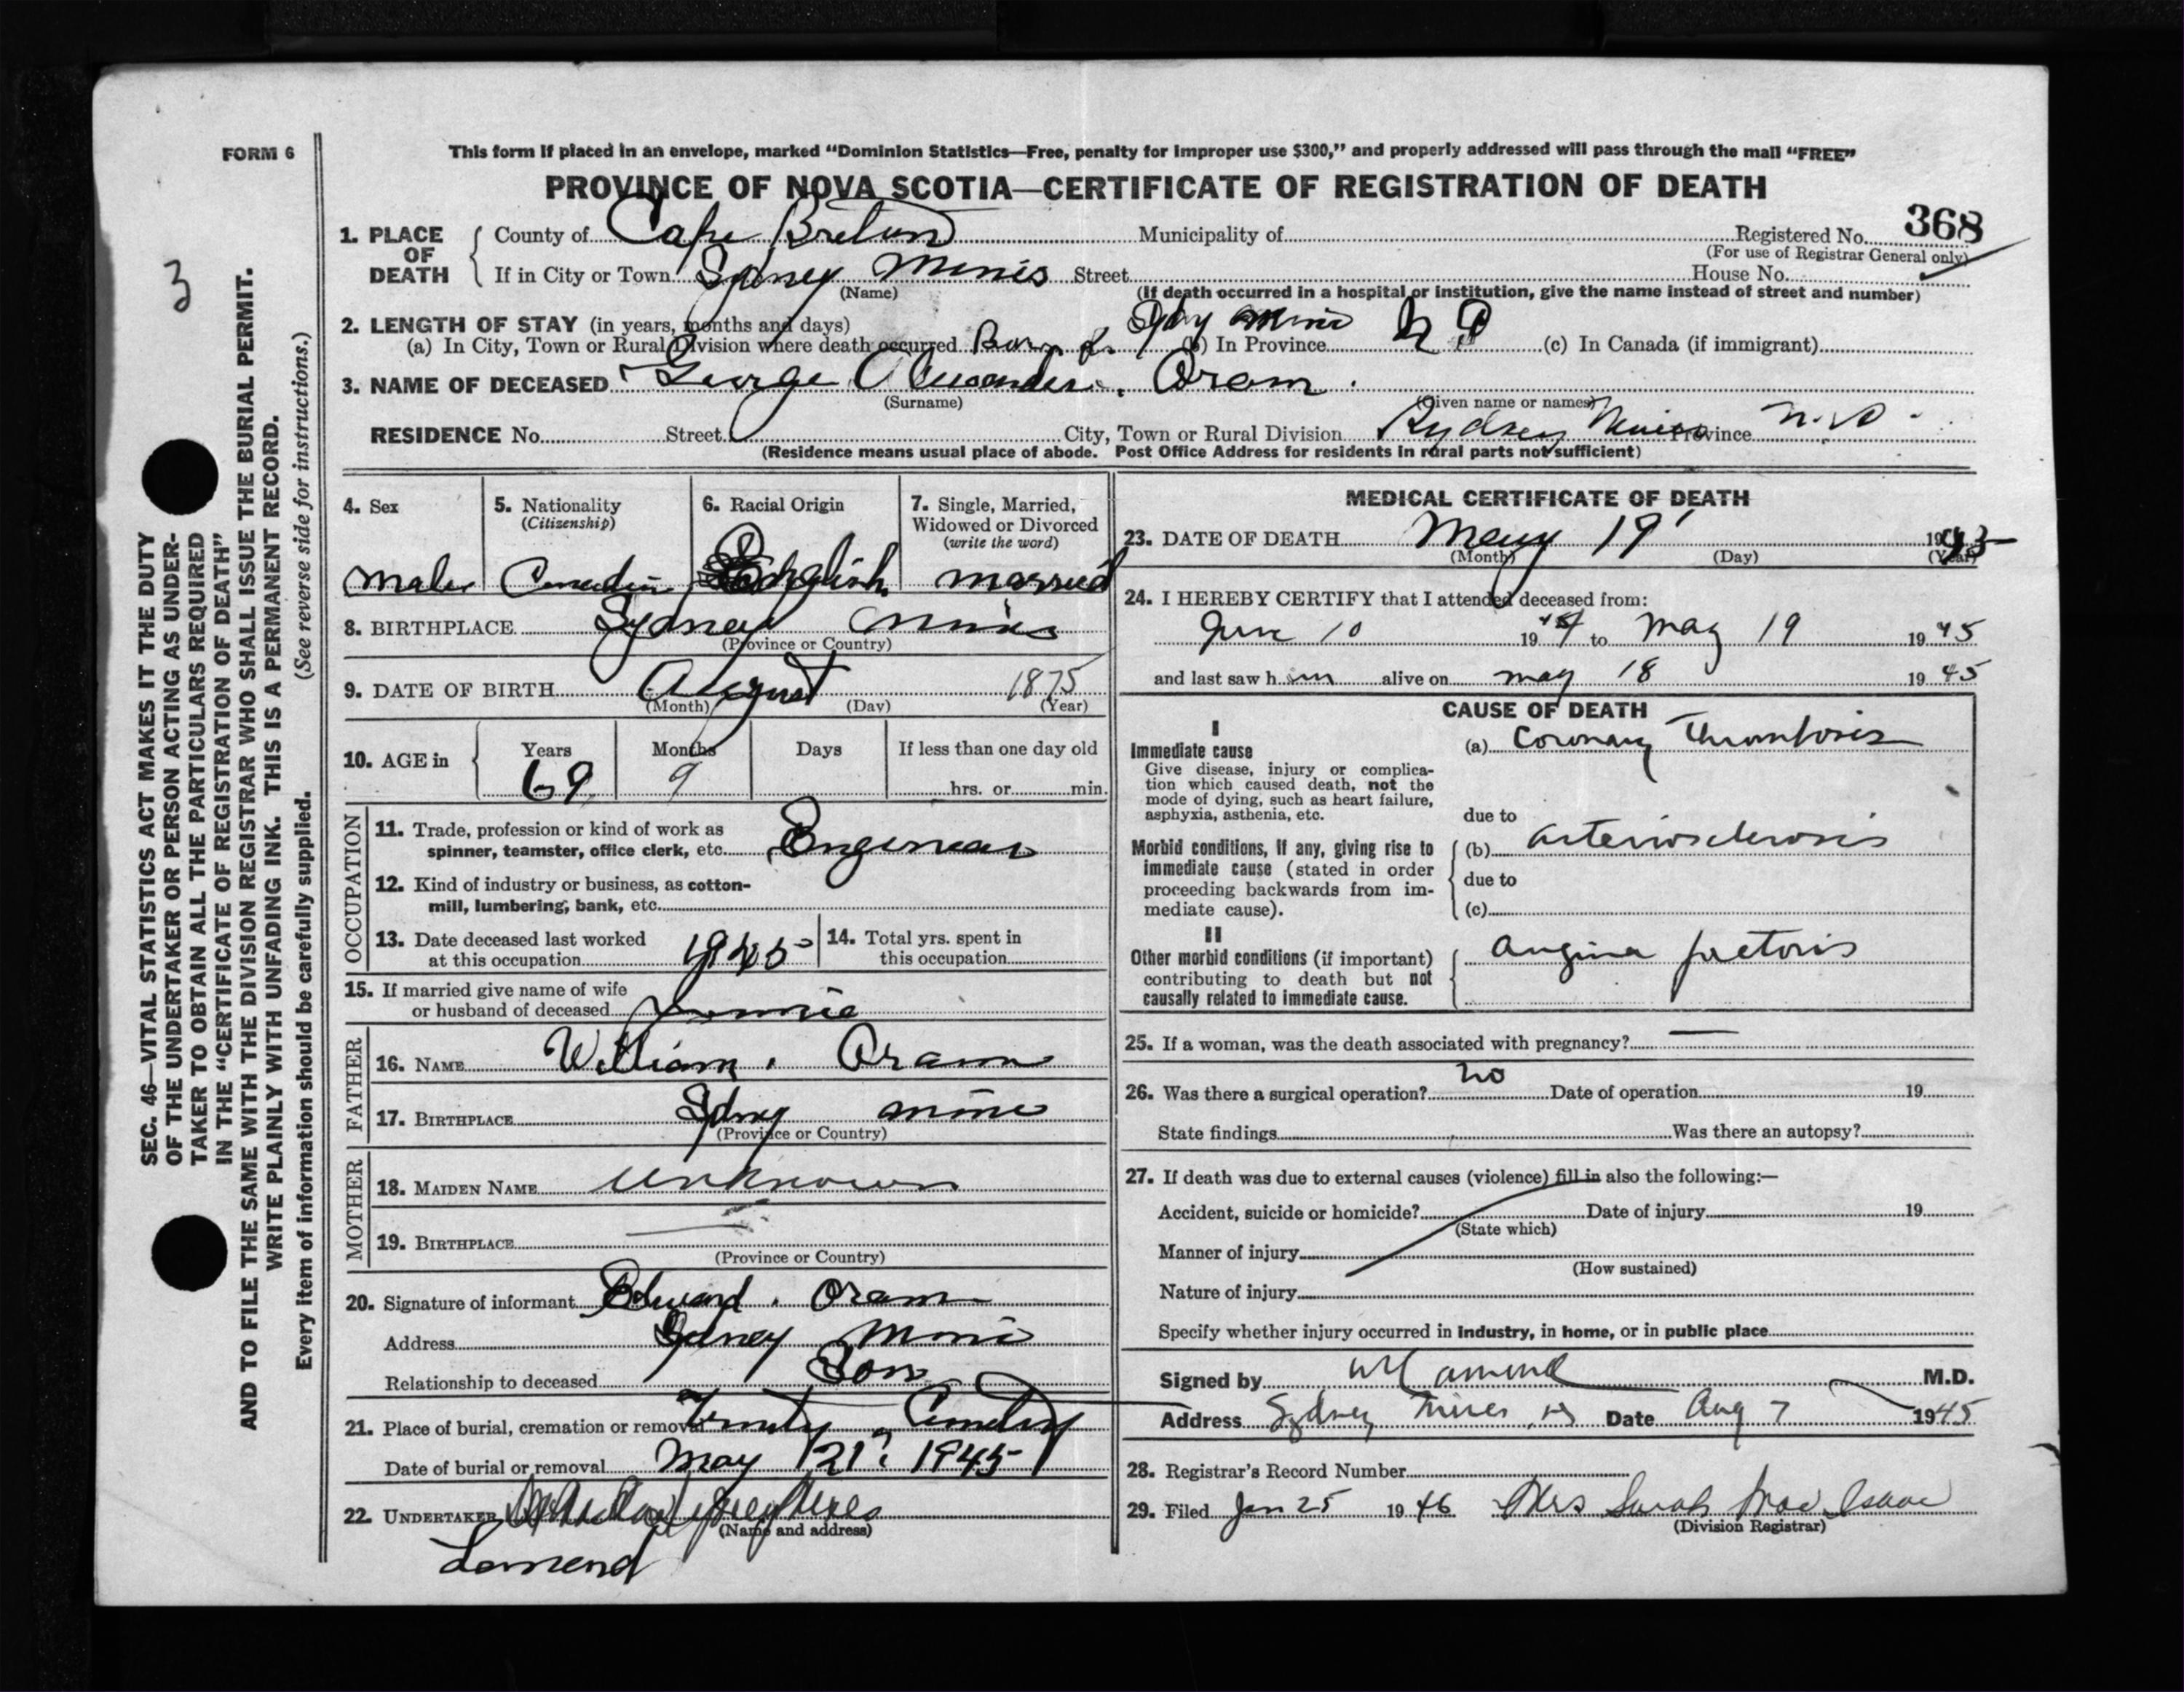 FORM 6
This form if placed in an envelope, marked “Dominion Statistics—Free, penalty for improper use $300,” and properly addressed will pass through the mail “FREE”
PROVINCE OF NOVA SCOTIA—CERTIFICATE OF REGISTRATION OF DEATH
3
SEC. 46—VITAL STATISTICS ACT MAKES IT THE DUTY
OF THE UNDERTAKER OR PERSON ACTING AS UNDER-
TAKER TO OBTAIN ALL THE PARTICULARS REQUIRED
IN THE “CERTIFICATE OF REGISTRATION OF DEATH”
AND TO FILE THE SAME WITH THE DIVISION REGISTRAR WHO SHALL ISSUE THE BURIAL PERMIT.
WRITE PLAINLY WITH UNFADING INK. THIS IS A PERMANENT RECORD.
Every item of information should be carefully supplied. (See reverse side for instructions.)
1. PLACE OF DEATH
County of Cape Breton Municipality of Registered No. 368
(For use of Registrar General only)
If in City or Town Sydney Mines Street House No.
(Name) (If death occurred in a hospital or institution, give the name instead of street and number)
2. LENGTH OF STAY (in years, months and days)
(a) In City, Town or Rural Division where death occurred Born (b) In Province (c) In Canada (if immigrant)
3. NAME OF DECEASED George Alexander Oram
(Surname) (Given name or names)
RESIDENCE No. Street City, Town or Rural Division Sydney Mines Province N.S.
(Residence means usual place of abode. Post Office Address for residents in rural parts not sufficient)
4. Sex
male
5. Nationality
(Citizenship)
Canadian
6. Racial Origin
English
7. Single, Married,
Widowed or Divorced
(write the word)
married
8. BIRTHPLACE Sydney Mines
(Province or Country)
9. DATE OF BIRTH August 1875
(Month) (Day) (Year)
10. AGE in Years 69 Months 9 Days If less than one day old
hrs. or min.
OCCUPATION
11. Trade, profession or kind of work as
spinner, teamster, office clerk, etc. Engineer
12. Kind of industry or business, as cotton-
mill, lumbering, bank, etc.
13. Date deceased last worked
at this occupation 1945
14. Total yrs. spent in
this occupation
15. If married give name of wife
or husband of deceased Jennie
FATHER
16. NAME William Oram
17. BIRTHPLACE Sydney Mines
(Province or Country)
MOTHER
18. MAIDEN NAME Unknown
19. BIRTHPLACE
(Province or Country)
20. Signature of informant Edward Oram
Address Sydney Mines
Relationship to deceased Son
21. Place of burial, cremation or removal Trinity Cemetery
Date of burial or removal May 21 1945
22. UNDERTAKER
(Name and address)
MEDICAL CERTIFICATE OF DEATH
23. DATE OF DEATH May 19 1945
(Month) (Day) (Year)
24. I HEREBY CERTIFY that I attended deceased from:
June 10 1944 to May 19 1945
and last saw him alive on may 18 1945
CAUSE OF DEATH
I
Immediate cause
Give disease, injury or complica-
tion which caused death, not the
mode of dying, such as heart failure,
asphyxia, asthenia, etc.
(a) Coronary Thrombosis
due to
Morbid conditions, if any, giving rise to
immediate cause (stated in order
proceeding backwards from im-
mediate cause).
(b) arteriosclerosis
due to
(c)
II
Other morbid conditions (if important)
contributing to death but not
causally related to immediate cause.
angina pectoris
25. If a woman, was the death associated with pregnancy? —
26. Was there a surgical operation? no Date of operation 19
State findings Was there an autopsy?
27. If death was due to external causes (violence) fill in also the following:—
Accident, suicide or homicide? Date of injury 19
(State which)
Manner of injury
(How sustained)
Nature of injury
Specify whether injury occurred in industry, in home, or in public place
Signed by M.D.
Address Sydney Mines, NS Date Aug 7 1945
28. Registrar's Record Number
29. Filed Jan 25 1946 Mrs Sarah MacIsaac
(Division Registrar)